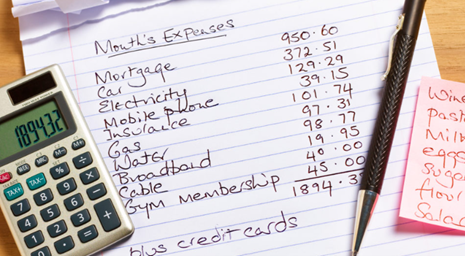 Month's Expenses
Mortgage 950.60
Car 372.51
Electricity 129.29
Mobile phone 39.15
Insurance 101.74
Gas 97.31
Water 98.77
Broadband 19.95
Cable 40.00
Gym Membership 45.00
1894.3
plus credit cards
1894.32
TAX- TAX+
7 8 9
4 5 6
1 2 3
past
Mil
eggs
suga
flou